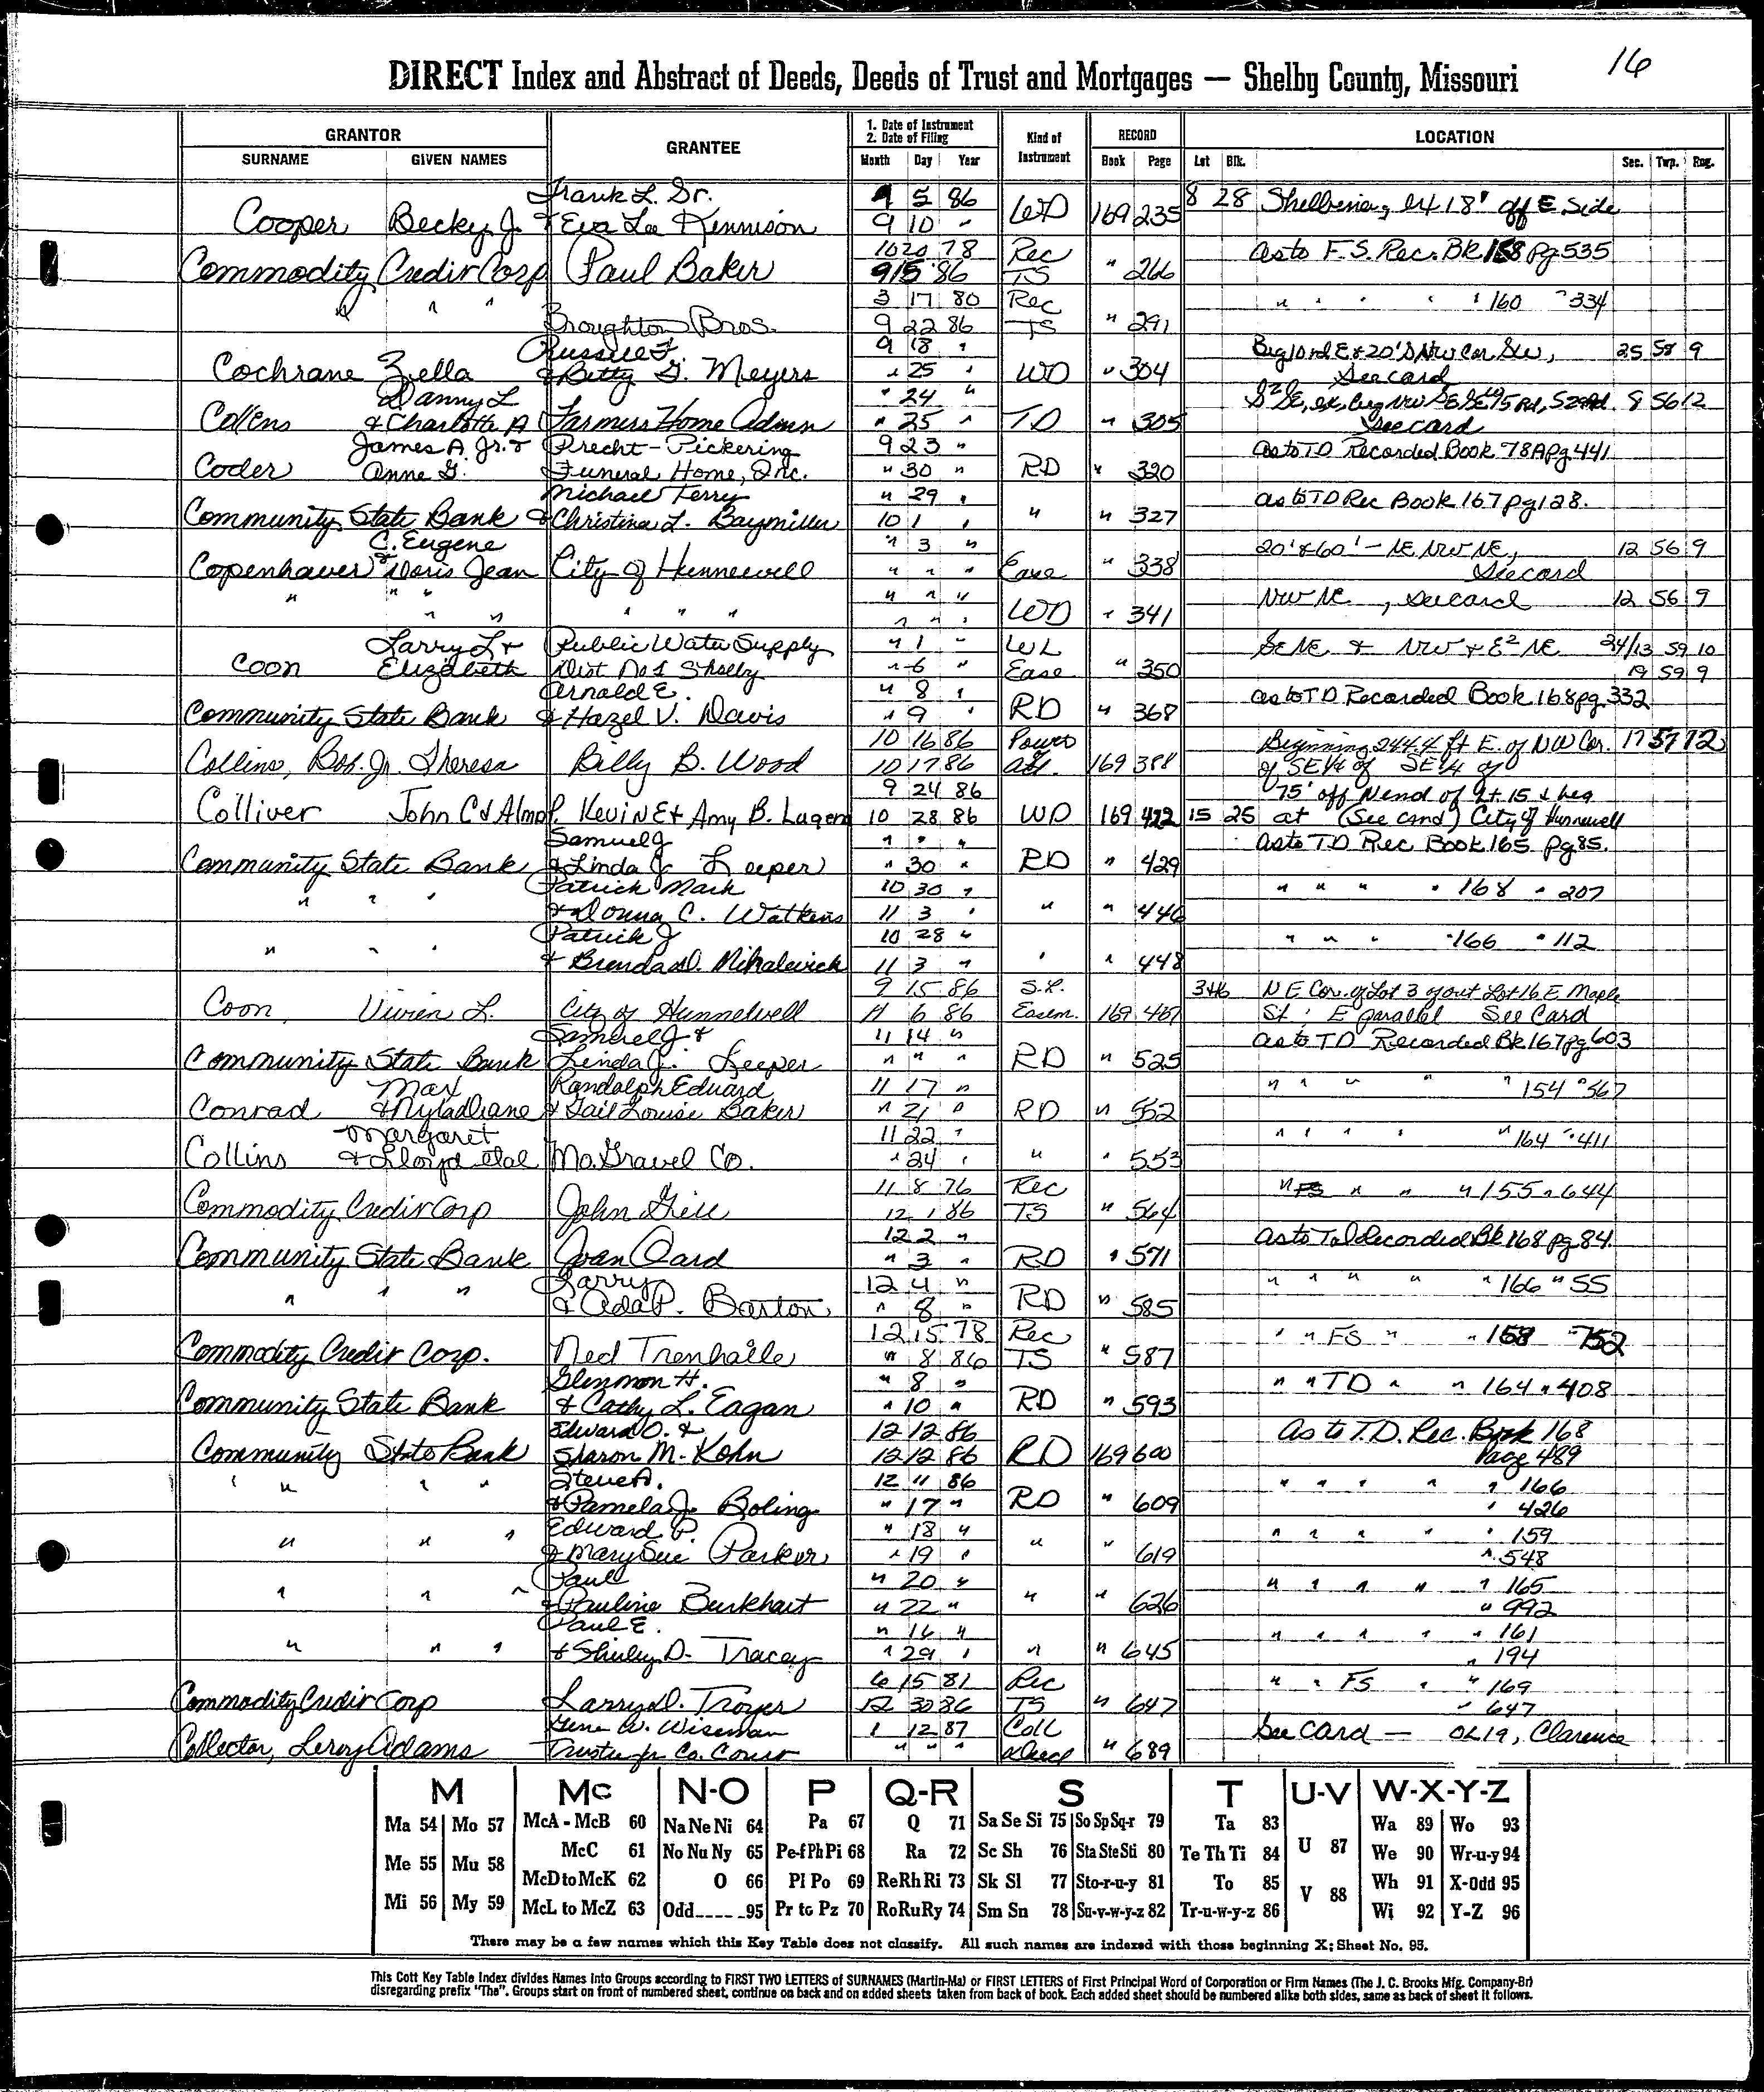 16
DIRECT Index and Abstract of Deeds, Deeds of Trust and Mortgages — Shelby County, Missouri
GRANTOR
SURNAME GIVEN NAMES
GRANTEE
1. Date of Instrument
2. Date of Filing
Month Day Year
Kind of Instrument
RECORD
Book Page
LOCATION
Lot Blk. Sec. Twp. Rng.
Frank L. Sr. 9 5 86 8 28 Shelbina, ex 18' off E Side
Cooper Becky J. & Eva Lee Kennison 9 10 " WD 169 235
10 20 78 Rec as to F.S. Rec. Bk 158 pg 535
Commodity Credit Corp Paul Baker 9 15 86 TS " 266
" " " 3 17 80 Rec " " " " " 160 " 334
Broughton Bros. 9 22 86 TS " 291
Russell F. 9 18 " Beg 10 rd E & 20' S NW Cor 25 58 9
Cochrane Zella & Betty G. Meyers " 25 " WD " 304 See card
Danny L " 24 " 8 56 12
Collins & Charlotte A Farmers Home Admn " 25 " TD " 305 See card
James A. Jr. & Precht-Pickering 9 23 " as to TD Recorded Book 78A pg 441
Coder Anne G. Funeral Home, Inc. " 30 " RD " 320
Michael Terry " 29 " as to TD Rec Book 167 pg 128.
Community State Bank & Christina L. Baymiller 10 1 " " " 327
C. Eugene " 3 " 20' & 60' - NE NW NE, 12 56 9
Copenhaver & Doris Jean City of Hunnewell " " " Ease " 338 See card
" " " " " " NW NE, see card 12 56 9
" " " " " " " " WD " 341
Larry L & Public Water Supply " 1 " WL SE NE & NW & E² NE 24/13 59 10
Coon Elizabeth Dist No 1 Shelby " 6 " Ease " 350 19 59 9
Arnold E. " 8 " as to TD Recorded Book 168 pg. 332
Community State Bank & Hazel V. Davis " 9 " RD " 368
10 16 86 Power Beginning 244.4 ft E. of NW Cor. 17 57 12
Collins, Bob. Jr. Theresa Billy B. Wood 10 17 86 att. 169 388 of SE¼ of SE¼ of
9 24 86 75' off N end of Lt 15 & beg
Colliver John C & Alma P. Kevin E & Amy B. Lugena 10 28 86 WD 169 422 15 25 at (See card) City of Hunnewell
Samuel J " " " as to TD Rec Book 165 pg 85.
Community State Bank & Linda J. Leeper " 30 " RD " 429
Patrick Mark 10 30 " " " " " 168 " 207
" " " & Donna C. Watkins 11 3 " " " 446
Patrick J 10 28 " " " " " 166 " 112
" " " & Brenda D. Mihalevich 11 3 " " " 448
9 15 86 3+16 NE Cor. of Lot 3 of out Lot 16 E Maple
Coon, Vivien L. City of Hunnewell 11 6 86 Easem. 169 457 St; E parallel See Card
Samuel J & 11 14 " as to TD Recorded Bk 167 pg 603
Community State Bank Linda J. Leeper " " " RD " 525
Max Randolph Eduard 11 17 " " " " " " 154 " 567
Conrad & Nyla Diane & Gail Louise Baker " 21 " RD " 552
Margaret 11 22 " " " " " " 164 " 411
Collins & Lloyd etal Mo. Gravel Co. " 24 " " " 553
11 8 76 Rec " FS " " " 155 " 644
Commodity Credit Corp John Greer 12 1 86 TS " 564
12 2 " as to Td Recorded Bk 168 pg 84.
Community State Bank Joan Oard " 3 " RD " 571
Larry 12 4 " " " " " " 166 " 55
" " " & Ada P. Barton " 8 " RD " 585
12 15 78 Rec " " FS " " 158 " 752
Commodity Credit Corp. Ned Trenhaile " 8 86 TS " 587
Glenmon H. " 8 " " " TD " " 164 " 408
Community State Bank & Cathy L. Eagan " 10 " RD " 593
Edward O. & 12 12 86 As to T.D. Rec. Book 168
Community State Bank Sharon M. Kohn 12 12 86 RD 169 600 Page 489
Steve A. 12 11 86 " " " " " 166
" " " " & Pamela J. Boling " 17 " RD " 609 " 426
Edward P. " 18 " " " " " " 159
" " " & Mary Sue Parker " 19 " " " 619 " 548
Paul " 20 " " " " " " 165
" " " & Pauline Burkhart " 22 " " " 626 " 992
Paul E. " 16 " " " " " " 161
" " " & Shirley D. Tracey " 29 " " " 645 " 194
6 15 81 Rec " " FS " " 169
Commodity Credit Corp Larry D. Troyer 12 30 86 TS " 647 " 647
Gene W. Wiseman 1 12 87 Coll See card — OL 19, Clarence
Collector, Leroy Adams Trustee for Co. Court " " " Deed " 689
M Mc N-O P Q-R S T U-V W-X-Y-Z
Ma 54 Mo 57 McA - McB 60 Na Ne Ni 64 Pa 67 Q 71 Sa Se Si 75 So Sp Sq-r 79 Ta 83 U 87 Wa 89 Wo 93
Me 55 Mu 58 McC 61 No Nu Ny 65 Pe-f Ph Pi 68 Ra 72 Sc Sh 76 Sta Ste Sti 80 Te Th Ti 84 V 88 We 90 Wr-u-y 94
McD to McK 62 O 66 Pl Po 69 Re Rh Ri 73 Sk Sl 77 Sto-r-u-y 81 To 85 Wh 91 X-Odd 95
Mi 56 My 59 McL to McZ 63 Odd 95 Pr to Pz 70 Ro Ru Ry 74 Sm Sn 78 Su-v-w-y-z 82 Tr-u-w-y-z 86 Wi 92 Y-Z 96
There may be a few names which this Key Table does not classify. All such names are indexed with those beginning X; Sheet No. 95.
This Cott Key Table Index divides Names into Groups according to FIRST TWO LETTERS of SURNAMES (Martin-Ma) or FIRST LETTERS of First Principal Word of Corporation or Firm Names (The J. C. Brooks Mfg. Company-Br)
disregarding prefix "The". Groups start on front of numbered sheet, continue on back and on added sheets taken from back of book. Each added sheet should be numbered alike both sides, same as back of sheet it follows.